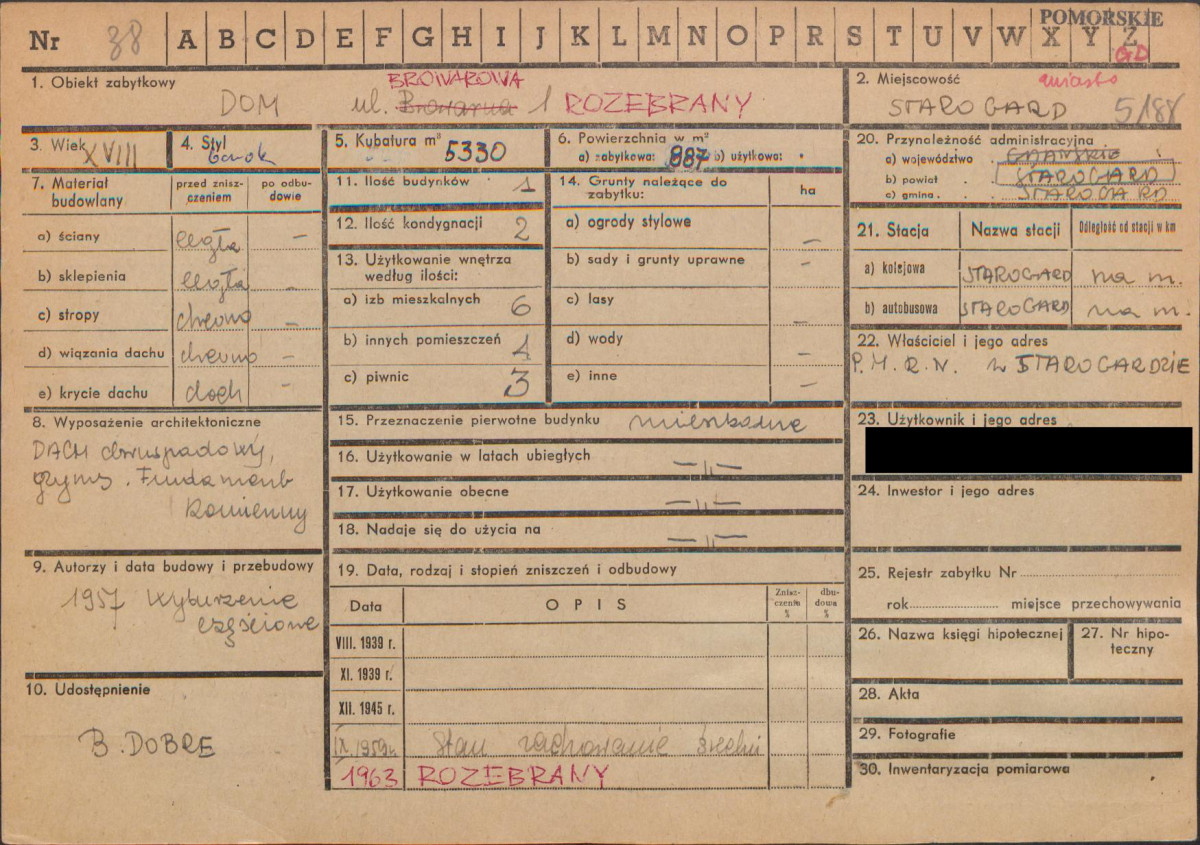 POMORSKIE
Nr 38 A B C D E F G H I J K L M N O P R S T U V W X Y Z
GD
1. Obiekt zabytkowy
BROWAROWA
DOM ul. Browarna 1 ROZEBRANY
2. Miejscowość miasto
STAROGARD 5/188
3. Wiek XVIII
4. Styl barok
5. Kubatura m³ 5330
6. Powierzchnia w m²
a) zabytkowa: 887 b) użytkowa:
20. Przynależność administracyjna
a) województwo GDAŃSKIE
b) powiat STAROGARD
c) gmina STAROGARD
7. Materiał budowlany
przed zniszczeniem
po odbudowie
a) ściany cegła –
b) sklepienia cegła –
c) stropy drewno –
d) wiązania dachu drewno –
e) krycie dachu dach –
11. Ilość budynków 1
12. Ilość kondygnacji 2
13. Użytkowanie wnętrza
według ilości:
a) izb mieszkalnych 6
b) innych pomieszczeń 1
c) piwnic 3
14. Grunty należące do
zabytku:
ha
a) ogrody stylowe –
b) sady i grunty uprawne –
c) lasy –
d) wody –
e) inne –
21. Stacja Nazwa stacji Odległość od stacji w km
a) kolejowa STAROGARD na m.
b) autobusowa STAROGARD na m.
22. Właściciel i jego adres
P.M.R.N. w STAROGARDZIE
8. Wyposażenie architektoniczne
DACH dwuspadowy,
gzyms. Fundament
kamienny
15. Przeznaczenie pierwotne budynku mieszkalne
16. Użytkowanie w latach ubiegłych –„–
17. Użytkowanie obecne –„–
18. Nadaje się do użycia na –„–
23. Użytkownik i jego adres
24. Inwestor i jego adres
9. Autorzy i data budowy i przebudowy
1957 Wyburzenie
częściowe
10. Udostępnienie
B. DOBRE
19. Data, rodzaj i stopień zniszczeń i odbudowy
Data OPIS Zniszczenia % dbudowa %
VIII. 1939 r.
XI. 1939 r.
XII. 1945 r.
IX. 1959 r. Stan zachowania średni
1963 ROZEBRANY
25. Rejestr zabytku Nr
rok miejsce przechowywania
26. Nazwa księgi hipotecznej
27. Nr hipoteczny
28. Akta
29. Fotografie
30. Inwentaryzacja pomiarowa